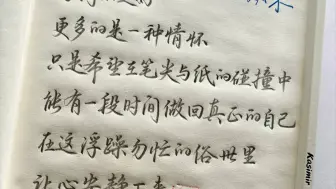 更多的是一种情怀
只是希望在笔尖与纸的碰撞中
能有一段时间做回真正的自己
在这浮躁匆忙的俗世里
让心安静下来
Kasimir